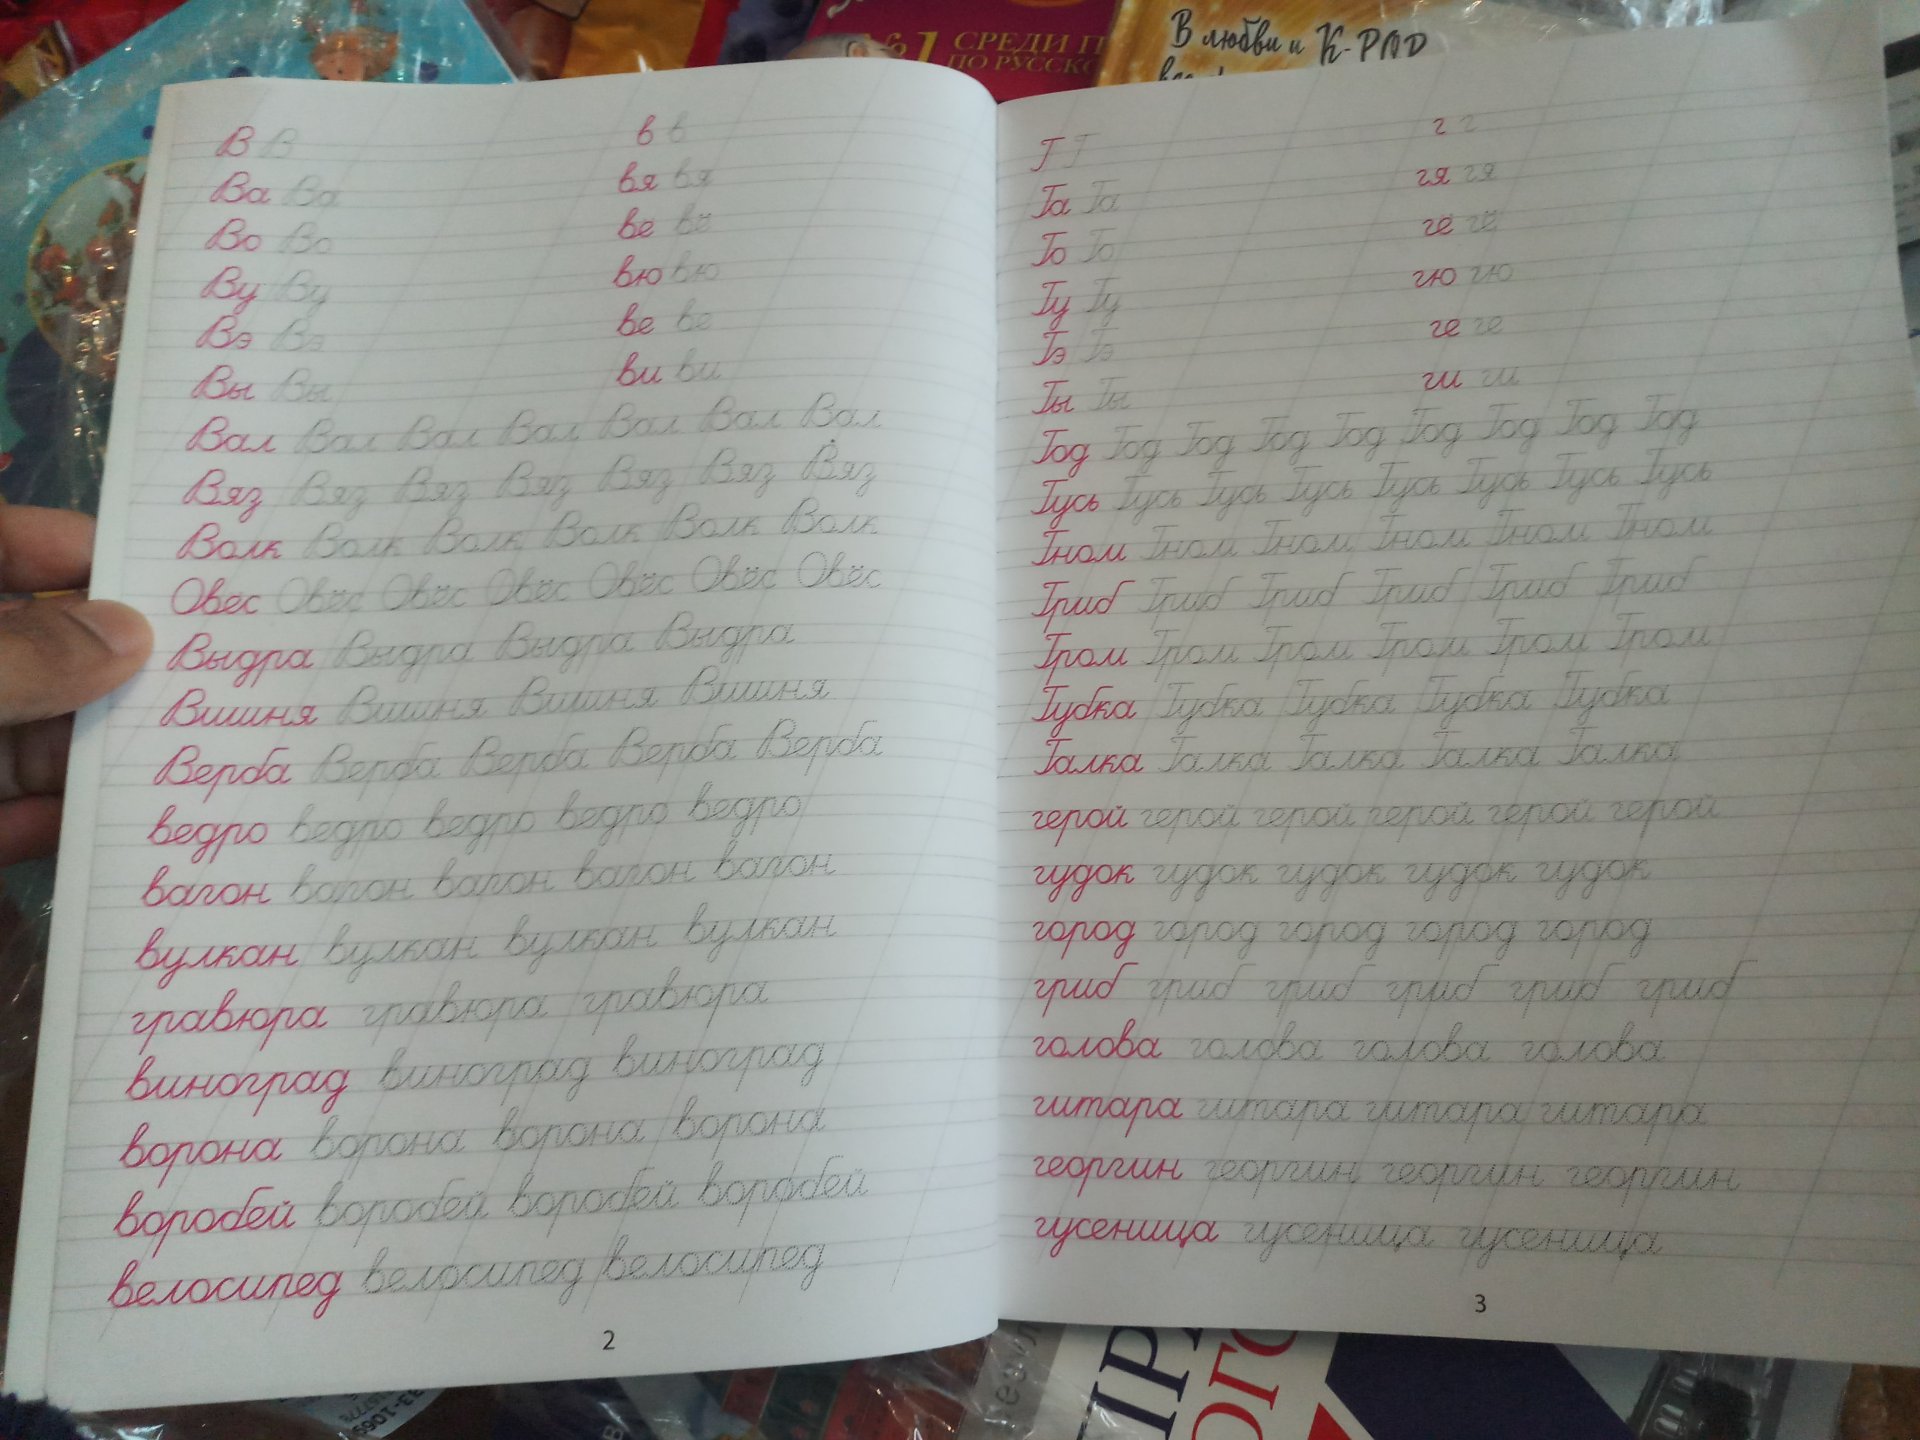 №1 СРЕДИ П
ПО РУССКО
В любви и K-POP
В В в в
Ва Ва вя вя
Во Во вё вё
Ву Ву вю вю
Вэ Вэ ве ве
Вы Вы ви ви
Вал Вал Вал Вал Вал Вал Вал
Вяз Вяз Вяз Вяз Вяз Вяз Вяз
Волк Волк Волк Волк Волк Волк
Овёс Овёс Овёс Овёс Овёс Овёс Овёс
Выдра Выдра Выдра Выдра
Вишня Вишня Вишня Вишня
Верба Верба Верба Верба Верба
ведро ведро ведро ведро ведро
вагон вагон вагон вагон вагон
вулкан вулкан вулкан вулкан
гравюра гравюра гравюра
виноград виноград виноград
ворона ворона ворона ворона
воробей воробей воробей воробей
велосипед велосипед велосипед
2
Г Г г г
Га Га гя гя
Го Го гё гё
Гу Гу гю гю
Гэ Гэ ге ге
Гы Гы ги ги
Год Год Год Год Год Год Год Год Год
Гусь Гусь Гусь Гусь Гусь Гусь Гусь Гусь
Гном Гном Гном Гном Гном Гном
Гриб Гриб Гриб Гриб Гриб Гриб
Гром Гром Гром Гром Гром Гром
Губка Губка Губка Губка Губка
Галка Галка Галка Галка Галка
герой герой герой герой герой герой
гудок гудок гудок гудок гудок
город город город город город
гриб гриб гриб гриб гриб гриб
голова голова голова голова
гитара гитара гитара гитара
георгин георгин георгин георгин
гусеница гусеница гусеница
3